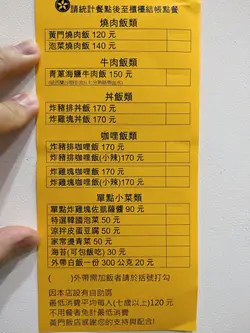 請統計餐點後至櫃檯結帳點餐
燒肉飯類
黃門燒肉飯 120 元
泡菜燒肉飯 140 元
牛肉飯類
青蔥海鹽牛肉飯 150 元
丼飯類
炸豬排丼飯 170 元
炸雞塊丼飯 170 元
咖哩飯類
炸豬排咖哩飯 170 元
炸豬排咖哩飯(小辣)170 元
炸雞塊咖哩飯 170 元
炸雞塊咖哩飯(小辣)170 元
單點小菜類
單點炸雞塊佐凱薩醬 90 元
特選韓國泡菜 50 元
涼拌皮蛋豆腐 50 元
家常燙青菜 50 元
海苔(可包飯吃) 30 元
外帶白飯一份 300 公克 20 元
( )外帶需加飯者請於括號打勾
因本店設有自助區
最低消費平均每人(七歲以上)120 元
不用餐者免計最低消費
黃門飯店感謝您的支持與配合!